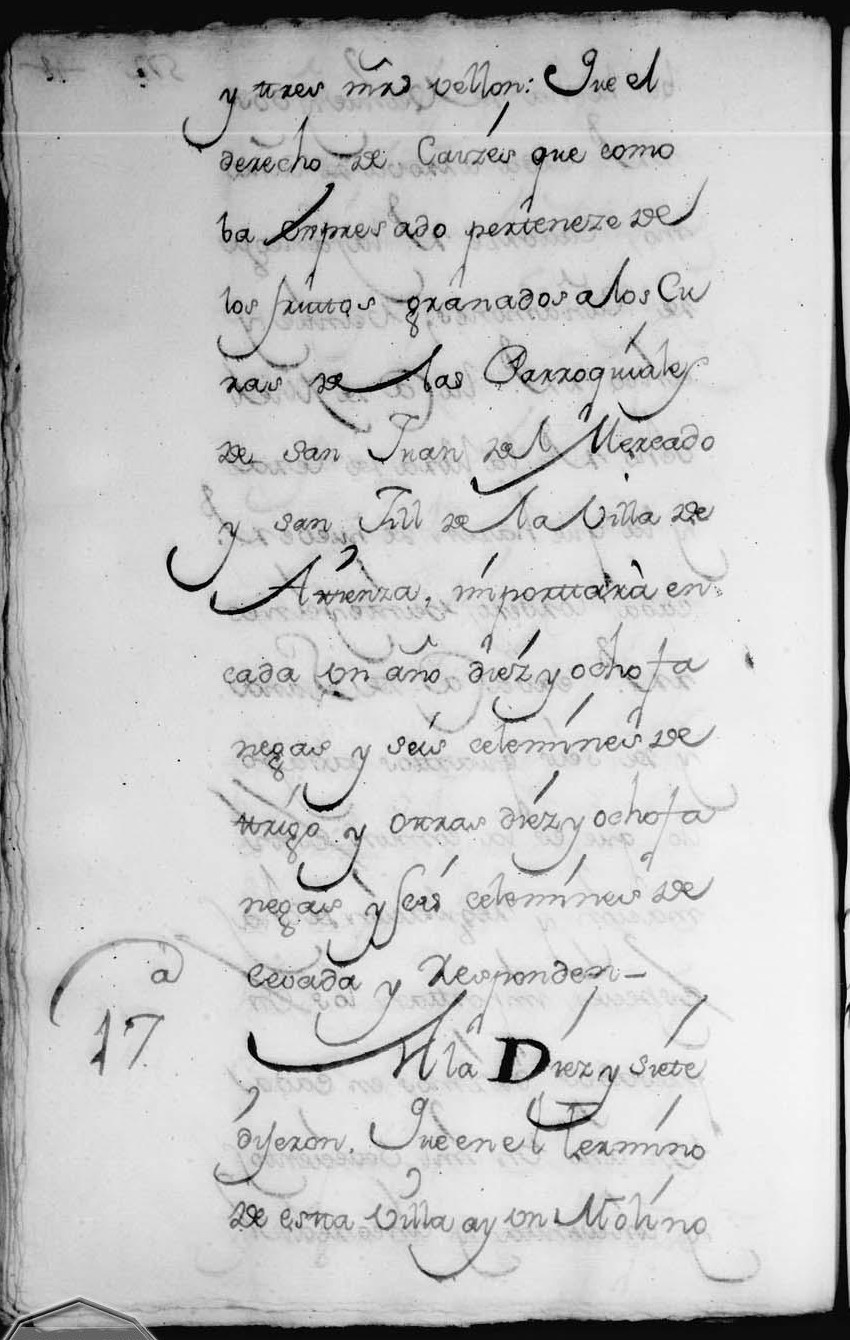 y ttres mrs vellon: Que el
derecho de Cavzeis que como
ba Enpresado perteneze de
los fruttos granados a los Cu
ras de las Parroquiales
de san Juan del Mercado
y san Jill de la Villa de
Attienza, importtarà en
cada un año diez y ocho fa
negas y seis celemines de
ttrigo y ottras diez y ocho fa
negas y seis celemines de
cevada y Responden—
a
17
A la Diez y siete
dijeron. Que en el termino
de estta Villa ay un Molino